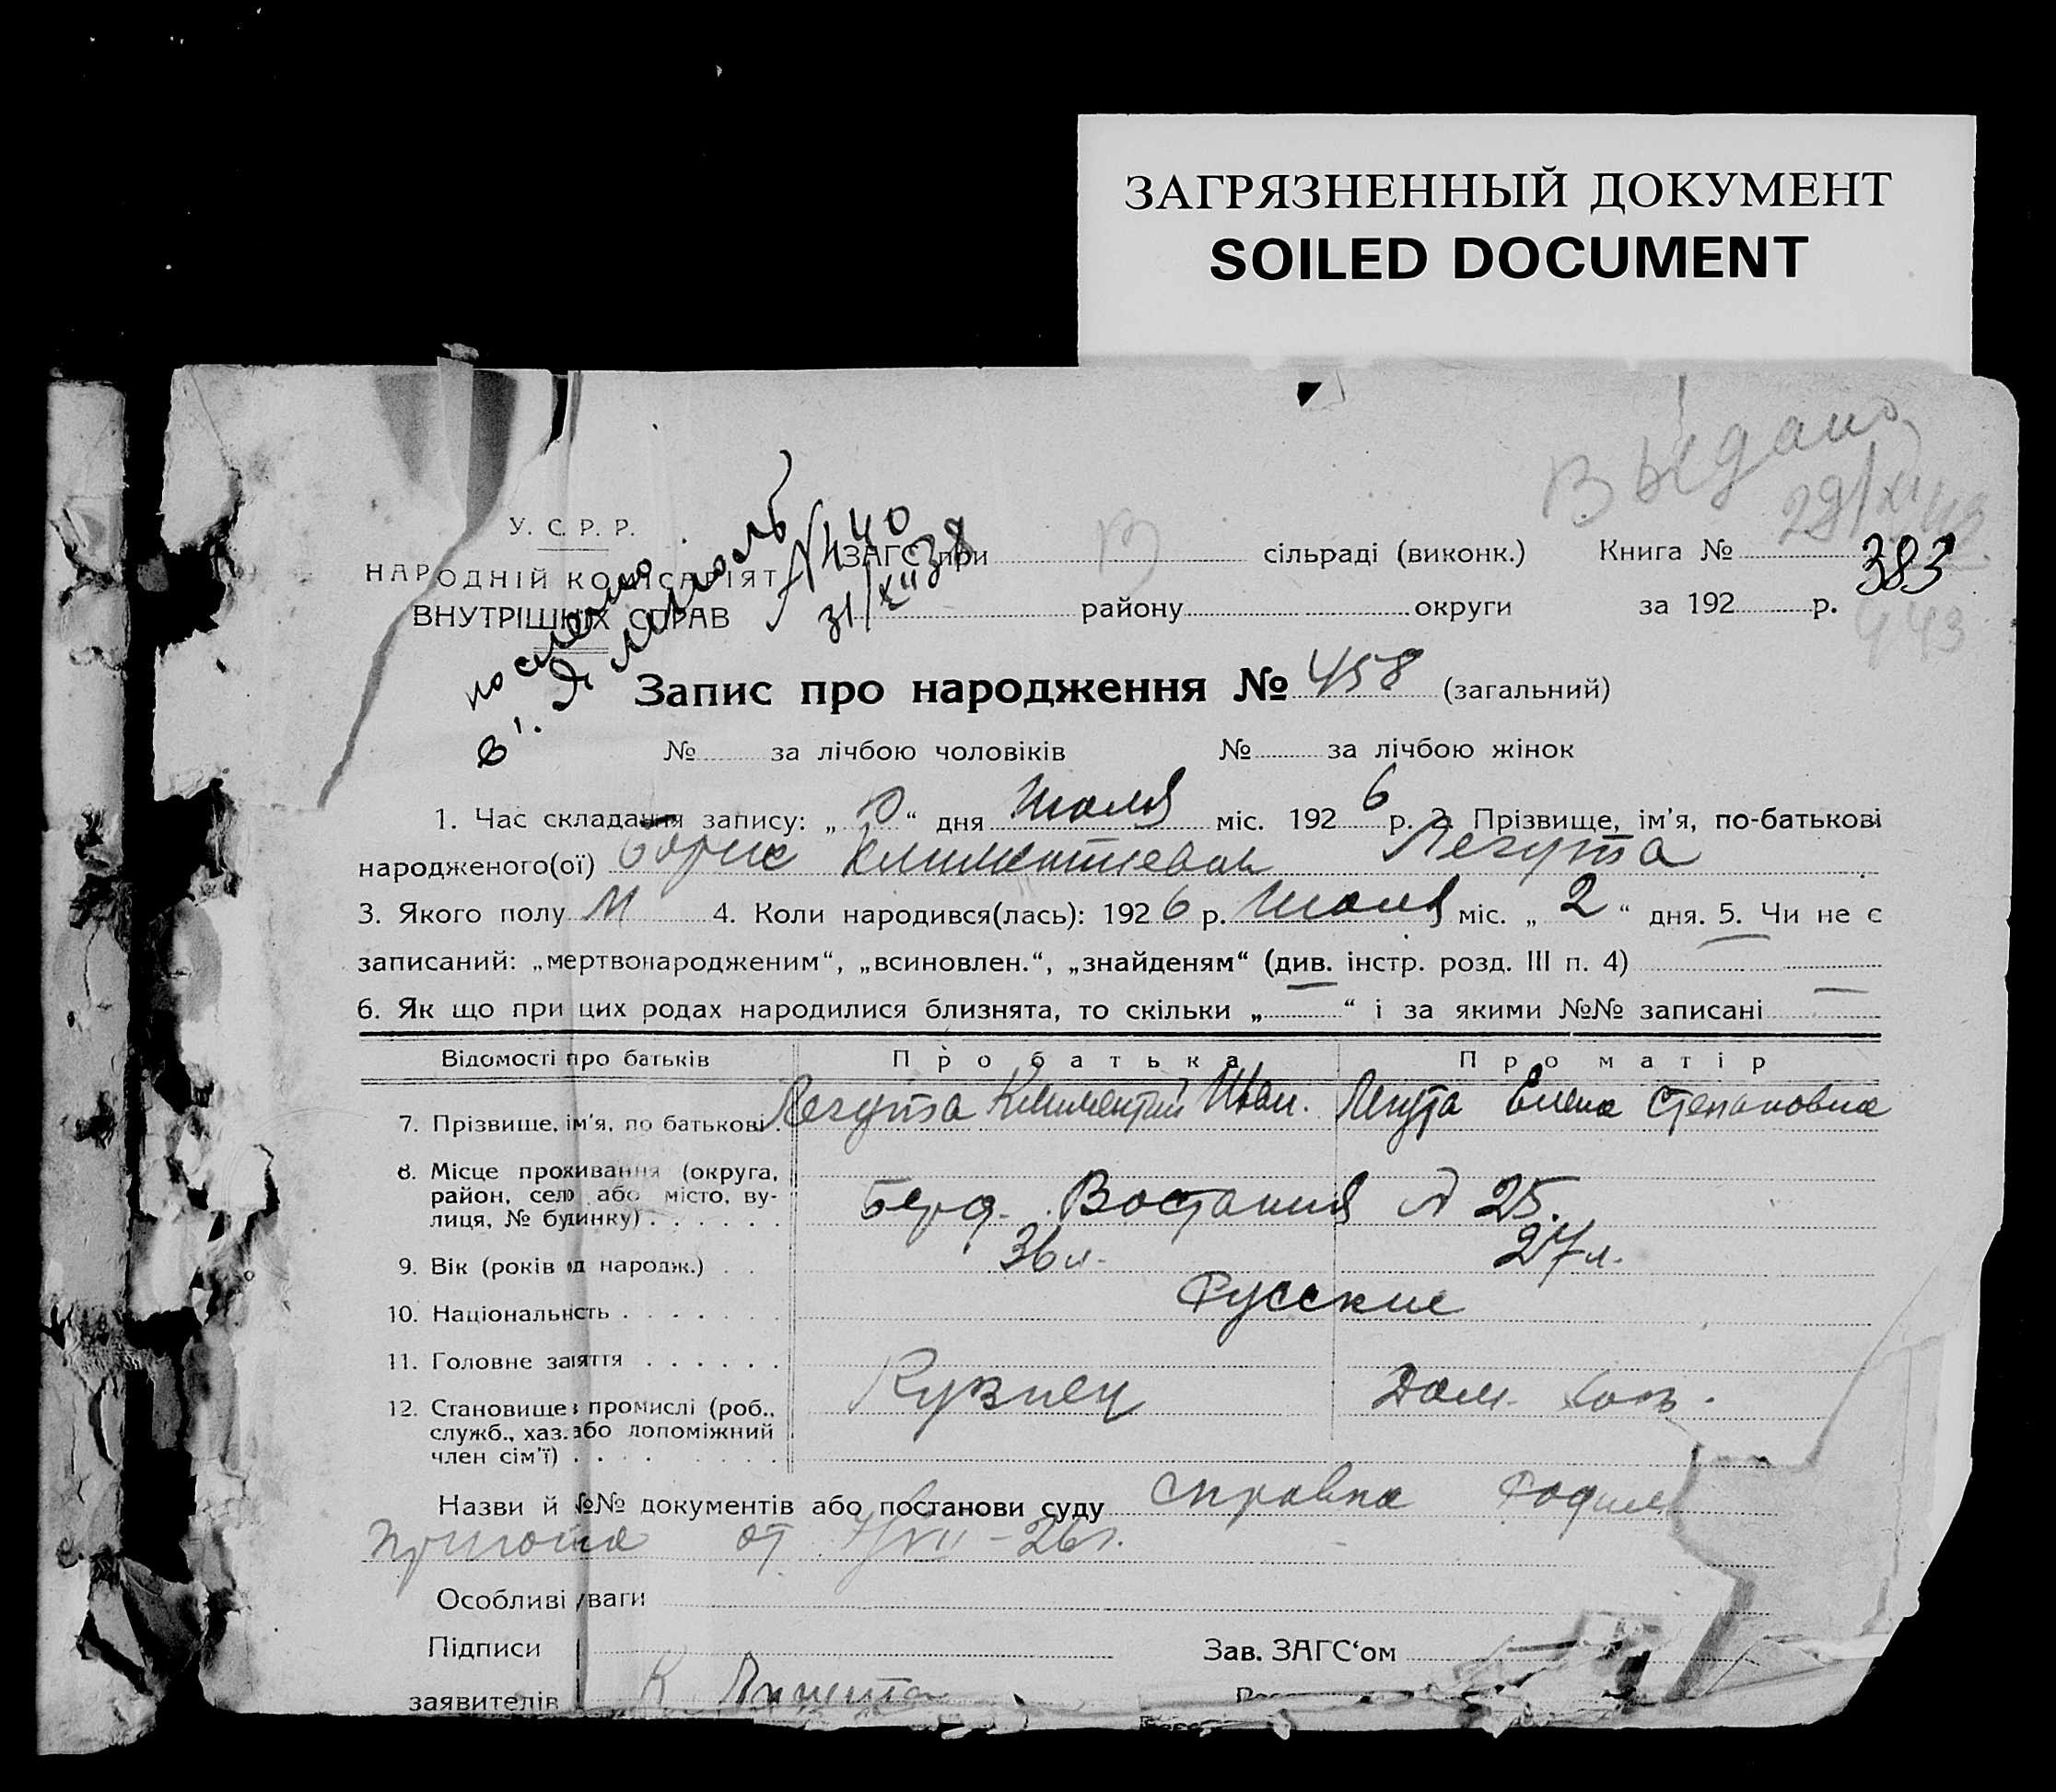 ЗАГРЯЗНЕННЫЙ ДОКУМЕНТ
SOILED DOCUMENT
Выдано
29/XI 43
У. С. Р. Р.
НАРОДНІЙ КОМІСАРІЯТ
ВНУТРІШНІХ СПРАВ
послано
в г. Ямполь
№ 140
31/XII 38
ЗАГС при сільраді (виконк.) Книга №
383
району округи за 192 р.
943
Запис про народження № 458 (загальний)
№ за лічбою чоловіків № за лічбою жінок
1. Час складання запису: „ 10 “ дня Июля міс. 192 6 р. 2. Прізвище, ім'я, по-батькові
народженого(ої) Борис Климентиевич Легута
3. Якого полу М 4. Коли народився(лась): 192 6 р. Июля міс. „ 2 “ дня. 5. Чи не є
записаний: „мертвонародженим“, „всиновлен.“, „знайденям“ (див. інстр. розд. III п. 4)
6. Як що при цих родах народилися близнята, то скільки „ — “ і за якими №№ записані —
Відомості про батьків Про батька Про матір
7. Прізвище, ім'я, по батькові Легута Климентий Иван. Легута Елена Степановна
8. Місце проживання (округа,
район, село або місто, ву-
лиця, № будинку) Берд. Востания № 25.
9. Вік (років од народж.) 36 л. 27 л.
10. Національність Русские
11. Головне заняття
Кузнец Дом. хоз.
12. Становище в промислі (роб.,
служб., хаз. або допоміжний
член сім'ї)
Назви й №№ документів або постанови суду справка Родил
приюта от 7/VII - 26 г.
Особливі уваги
Підписи Зав. ЗАГС‘ом
заявителів К Легута